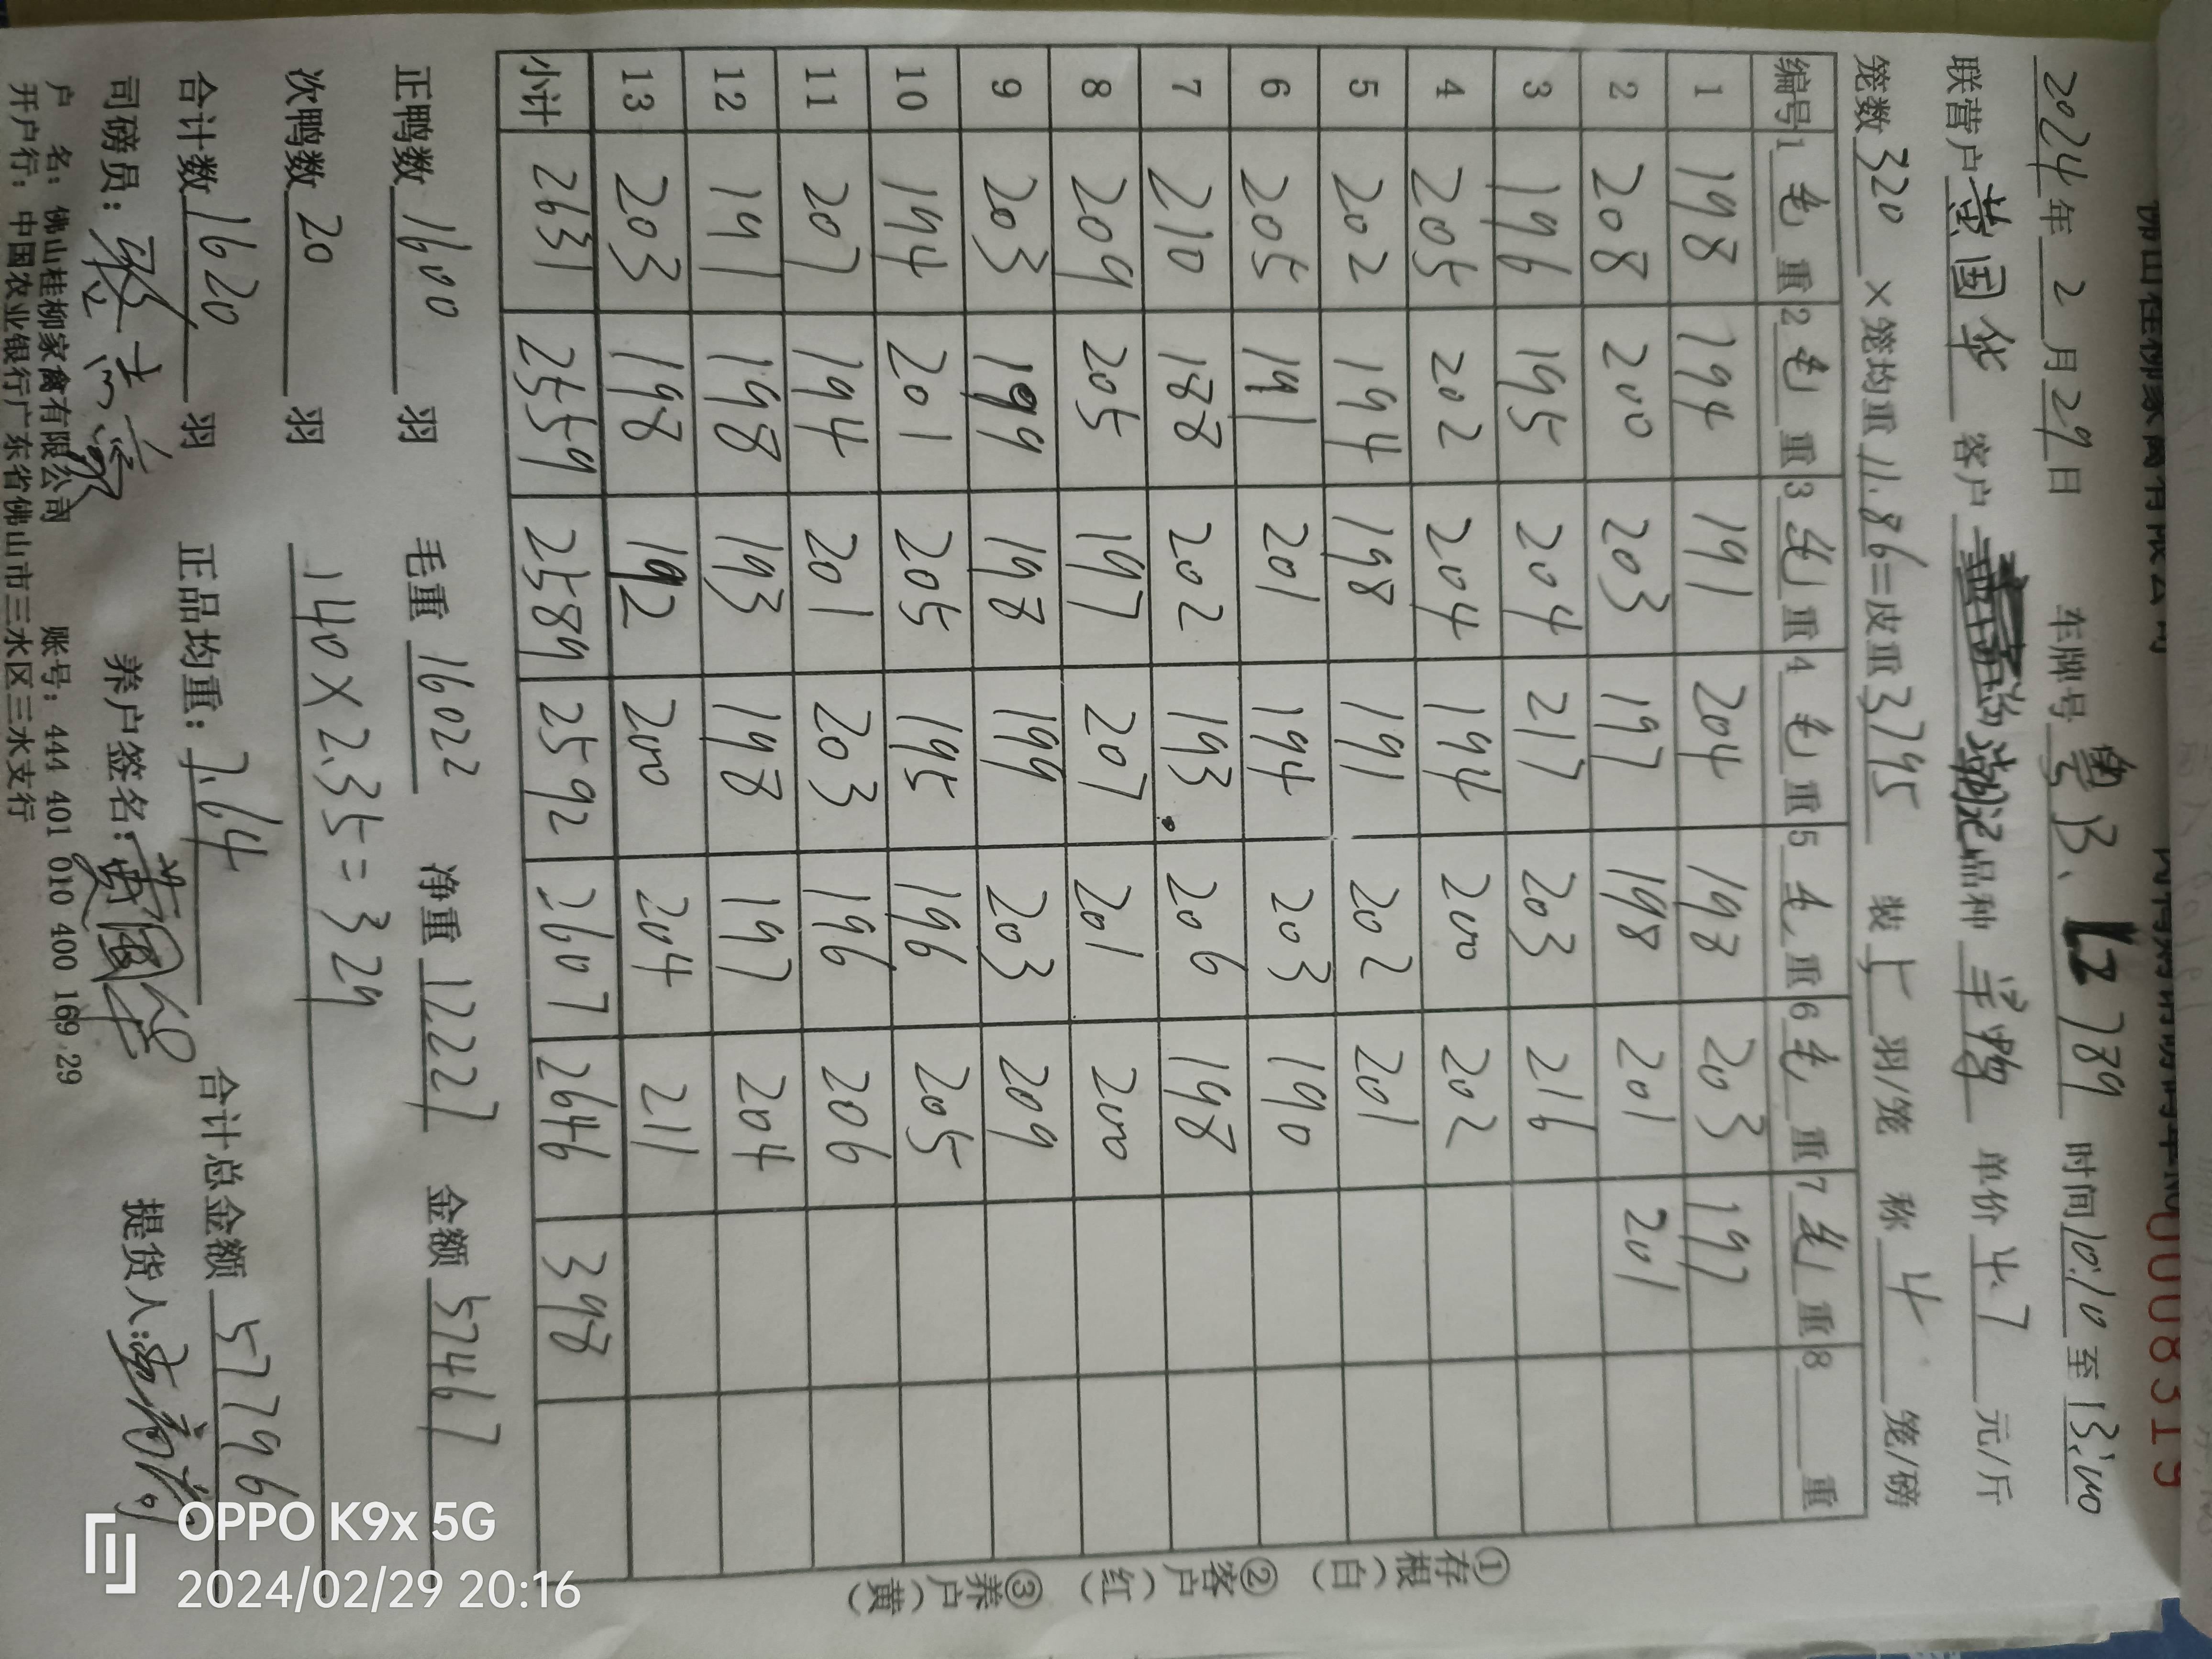 0008319
2024年2月29日 车牌号粤B、L2789 时间10:10至13:00
联营户黄国华 客户 品种 洋鸭 单价4.7元/斤
笼数320×笼均重11.86=皮重3795 数 七 羽/笼 称 4 笼/磅
编号 1毛重 2毛重 3毛重 4毛重 5毛重 6毛重 7毛重 8 重
1 198 194 191 204 198 203 197
2 208 200 203 197 198 201 201
3 196 195 204 217 203 216
4 205 202 204 194 200 202
5 202 194 198 191 202 201
6 205 191 201 194 203 190
7 210 188 202 193 206 198
8 209 205 197 207 201 200
9 203 199 198 199 203 209
10 194 201 205 195 196 205
11 207 194 201 203 196 206
12 191 198 193 198 197 204
13 203 198 192 200 204 211
小计 2631 2559 2589 2592 2607 2646 398
正鸭数 1600 羽 毛重 16022 净重 12227 金额 57467
次鸭数 20 羽 140×2.35=329
合计数 1620 羽 正品均重：7.64 合计总金额 57796
司磅员： 养户签名：黄国华 提货人：
户 名：佛山桂柳家禽有限公司 账号：444 401 010 400 169 29
开户行：中国农业银行广东省佛山市三水区三水支行
①存根（白） ②客户（红） ③养户（黄）
OPPO K9x 5G
2024/02/29 20:16